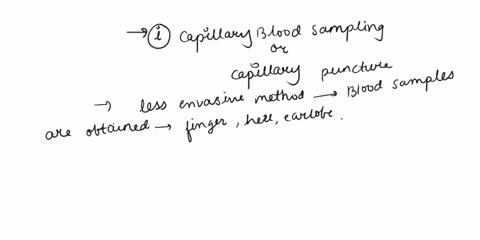 → (i) Capillary Blood Sampling
or
Capillary puncture
→ less envasive method → Blood samples
are obtained → finger, heel, earlobe.